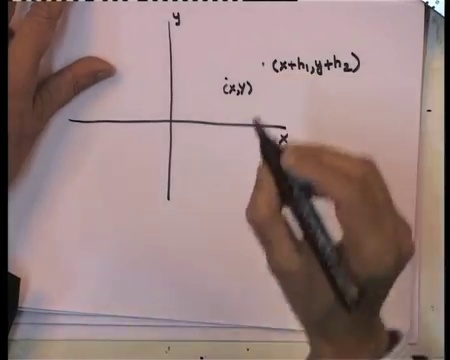 y
(x+h₁, y+h₂)
(x,y)
x